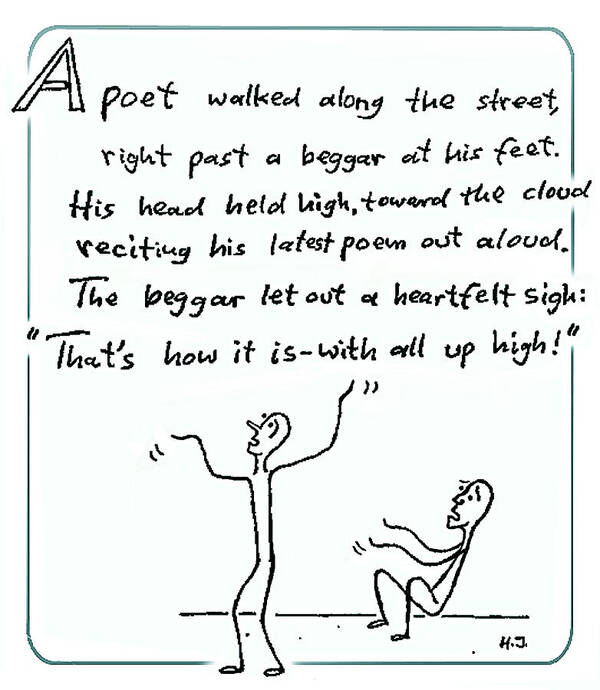 A poet walked along the street,
right past a beggar at his feet.
His head held high, toward the cloud
reciting his latest poem out aloud.
The beggar let out a heartfelt sigh:
"That's how it is - with all up high!"
H.J.